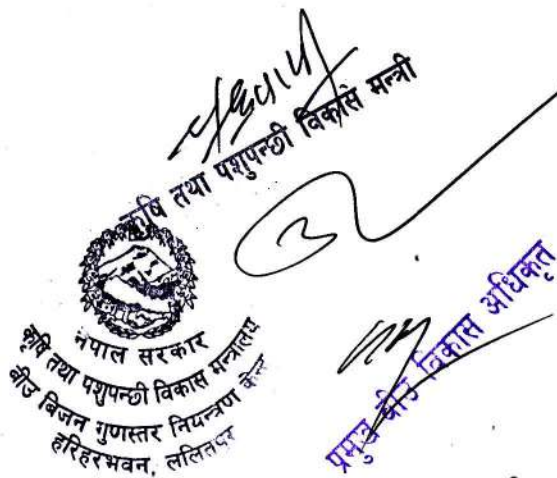 कृषि तथा पशुपन्छी विकास मन्त्री
नेपाल सरकार
कृषि तथा पशुपन्छी विकास मन्त्रालय
बीउ बिजन गुणस्तर नियन्त्रण केन्द्र
हरिहरभवन, ललितपुर
प्रमुख बीउ विकास अधिकृत